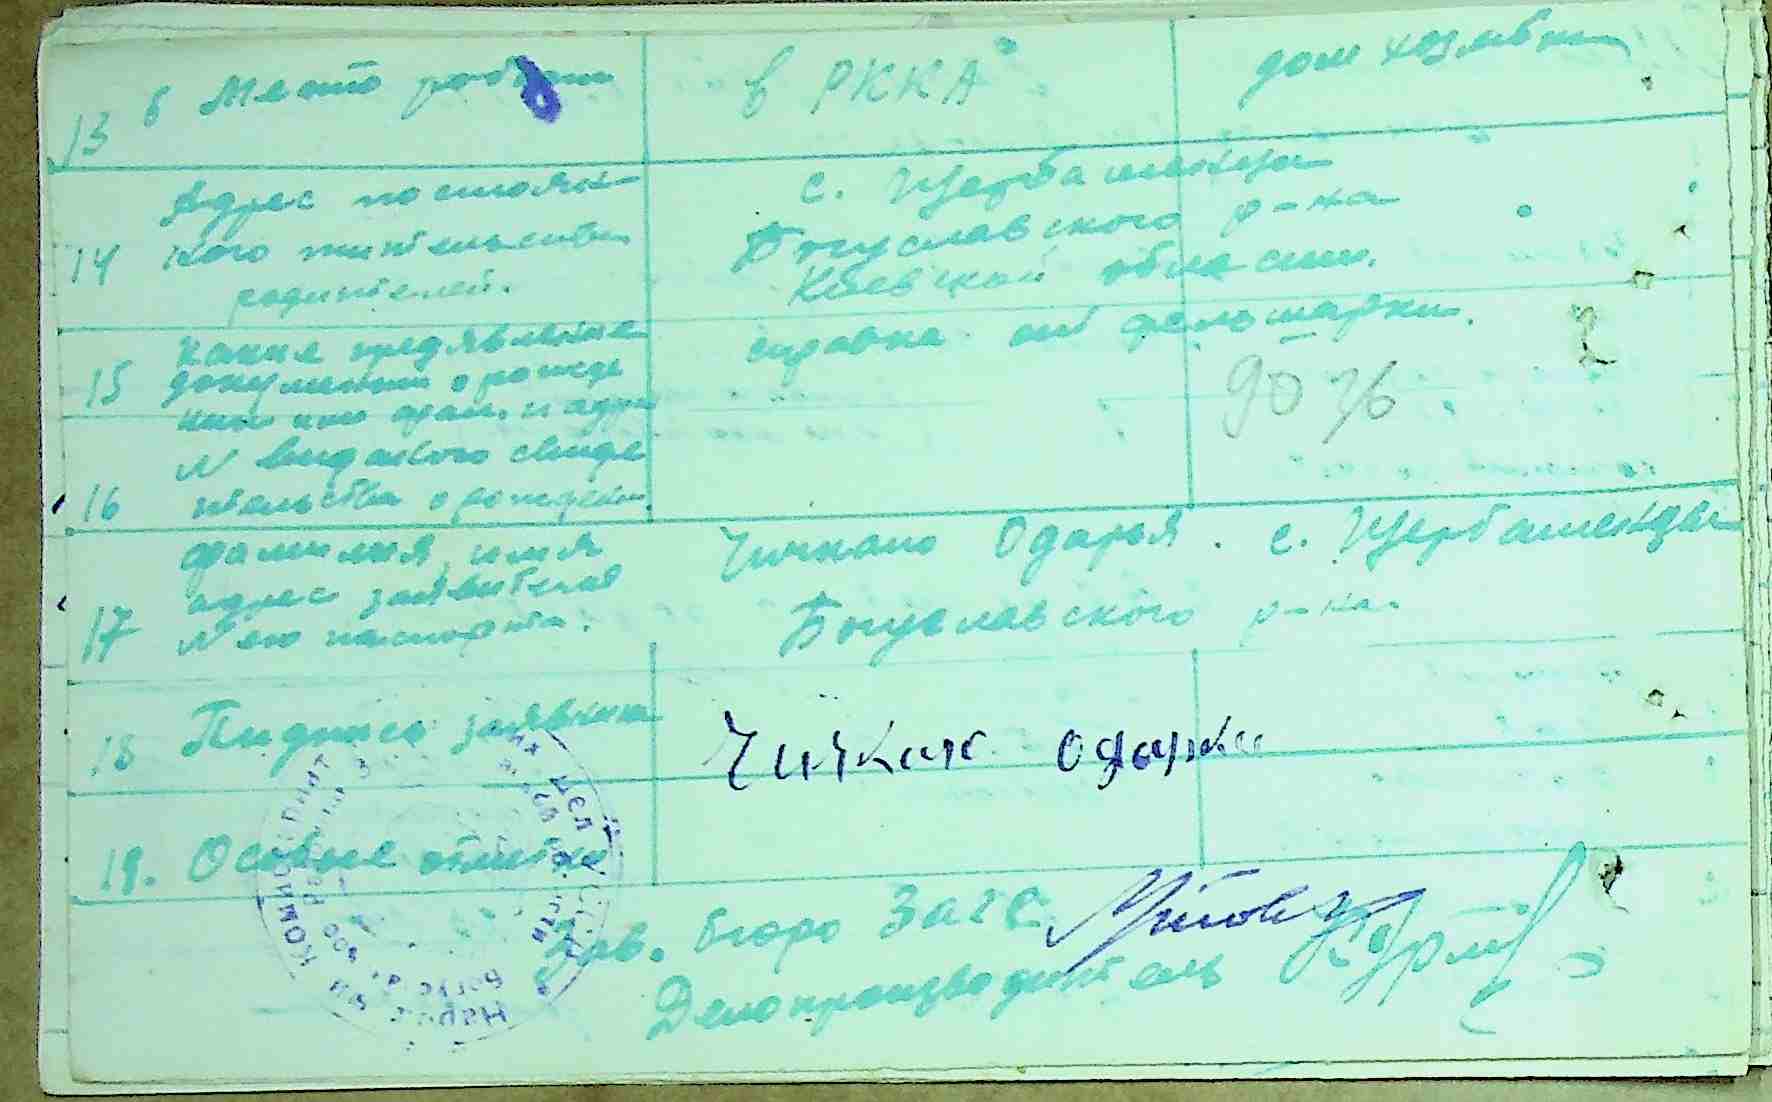 13 б Место работы в РККА дом хозяйка
Адрес постоян
14 ного жительства
родителей.
с. Щербашенцы
Богуславского р-на
Киевской области.
Какие предявлены
15 документы о рожде
нии или
справка от фельшарки.
90 76
N выданого свиде
16 тельства о рождении
Фамилия, имя
адрес заявителя
17 N его паспорта.
Чичкань Одарья. с. Щербашенцы
Богуславского р-на.
18 Пидпись заявника
Чичкан Одарка
19. Особые отметки
Зав. бюро Загс
Делопроизводитель